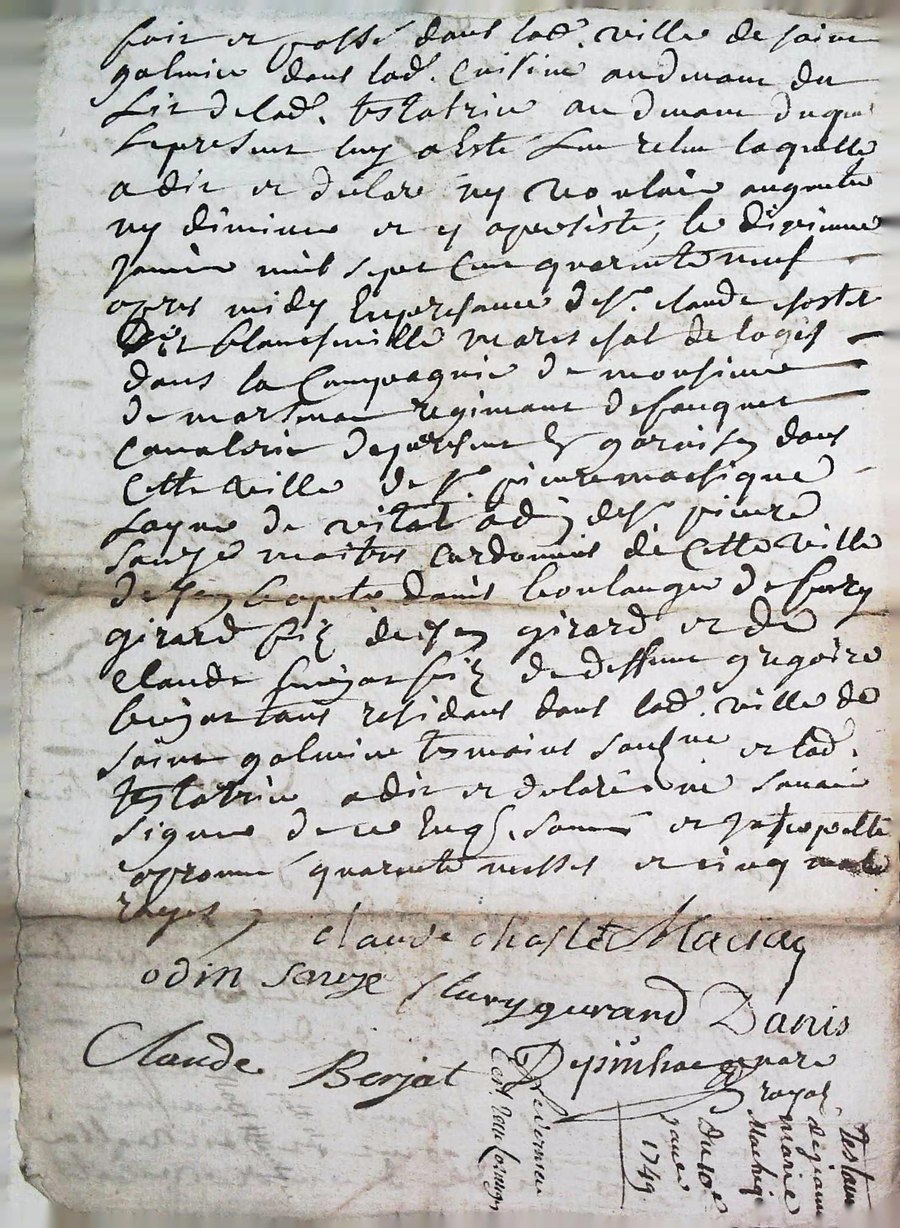 fait et passé dans lad. ville de saint
galmier dans lad. Cuisine au devant du
Lit de lad. testatrice au devant duquel
Le present luy a Esté Leu relu laquelle
a dit et declare ny vouloir augmenter
ny diminuer et y apersiste, le dixieme
Janvier mil sept Cent quarente neuf
apres midy En presance de sr. claude chostet
Dit blancheville mareschal de logis
dans la Compagnie de monsieur
de regimant de fouquet
Cavalerie de present En garnison dans
Cette ville de sr. pierre
de vital odin de sr. pierre
sauze maitres cordonniers de Cette ville
de Jean danis boulanger de fleury
girard filz de Jean girard et de
Claude berjat filz de deffunt gregoire
berjat tous residans dans lad. ville de
saint galmier temoins soubsigné et lad.
testatrice a dit et declaré ne savoir
signer de ce Enq. somé et Interpellé
aprouvé quarente messes et cinq mots
rayes
claude chostet Maciaq
odin Sauze fleury gerard Danis
Claude Berjat Depinhac nore
royal
Testam
de jeanne
marie
Machiq
Du 10e
janvier
1749